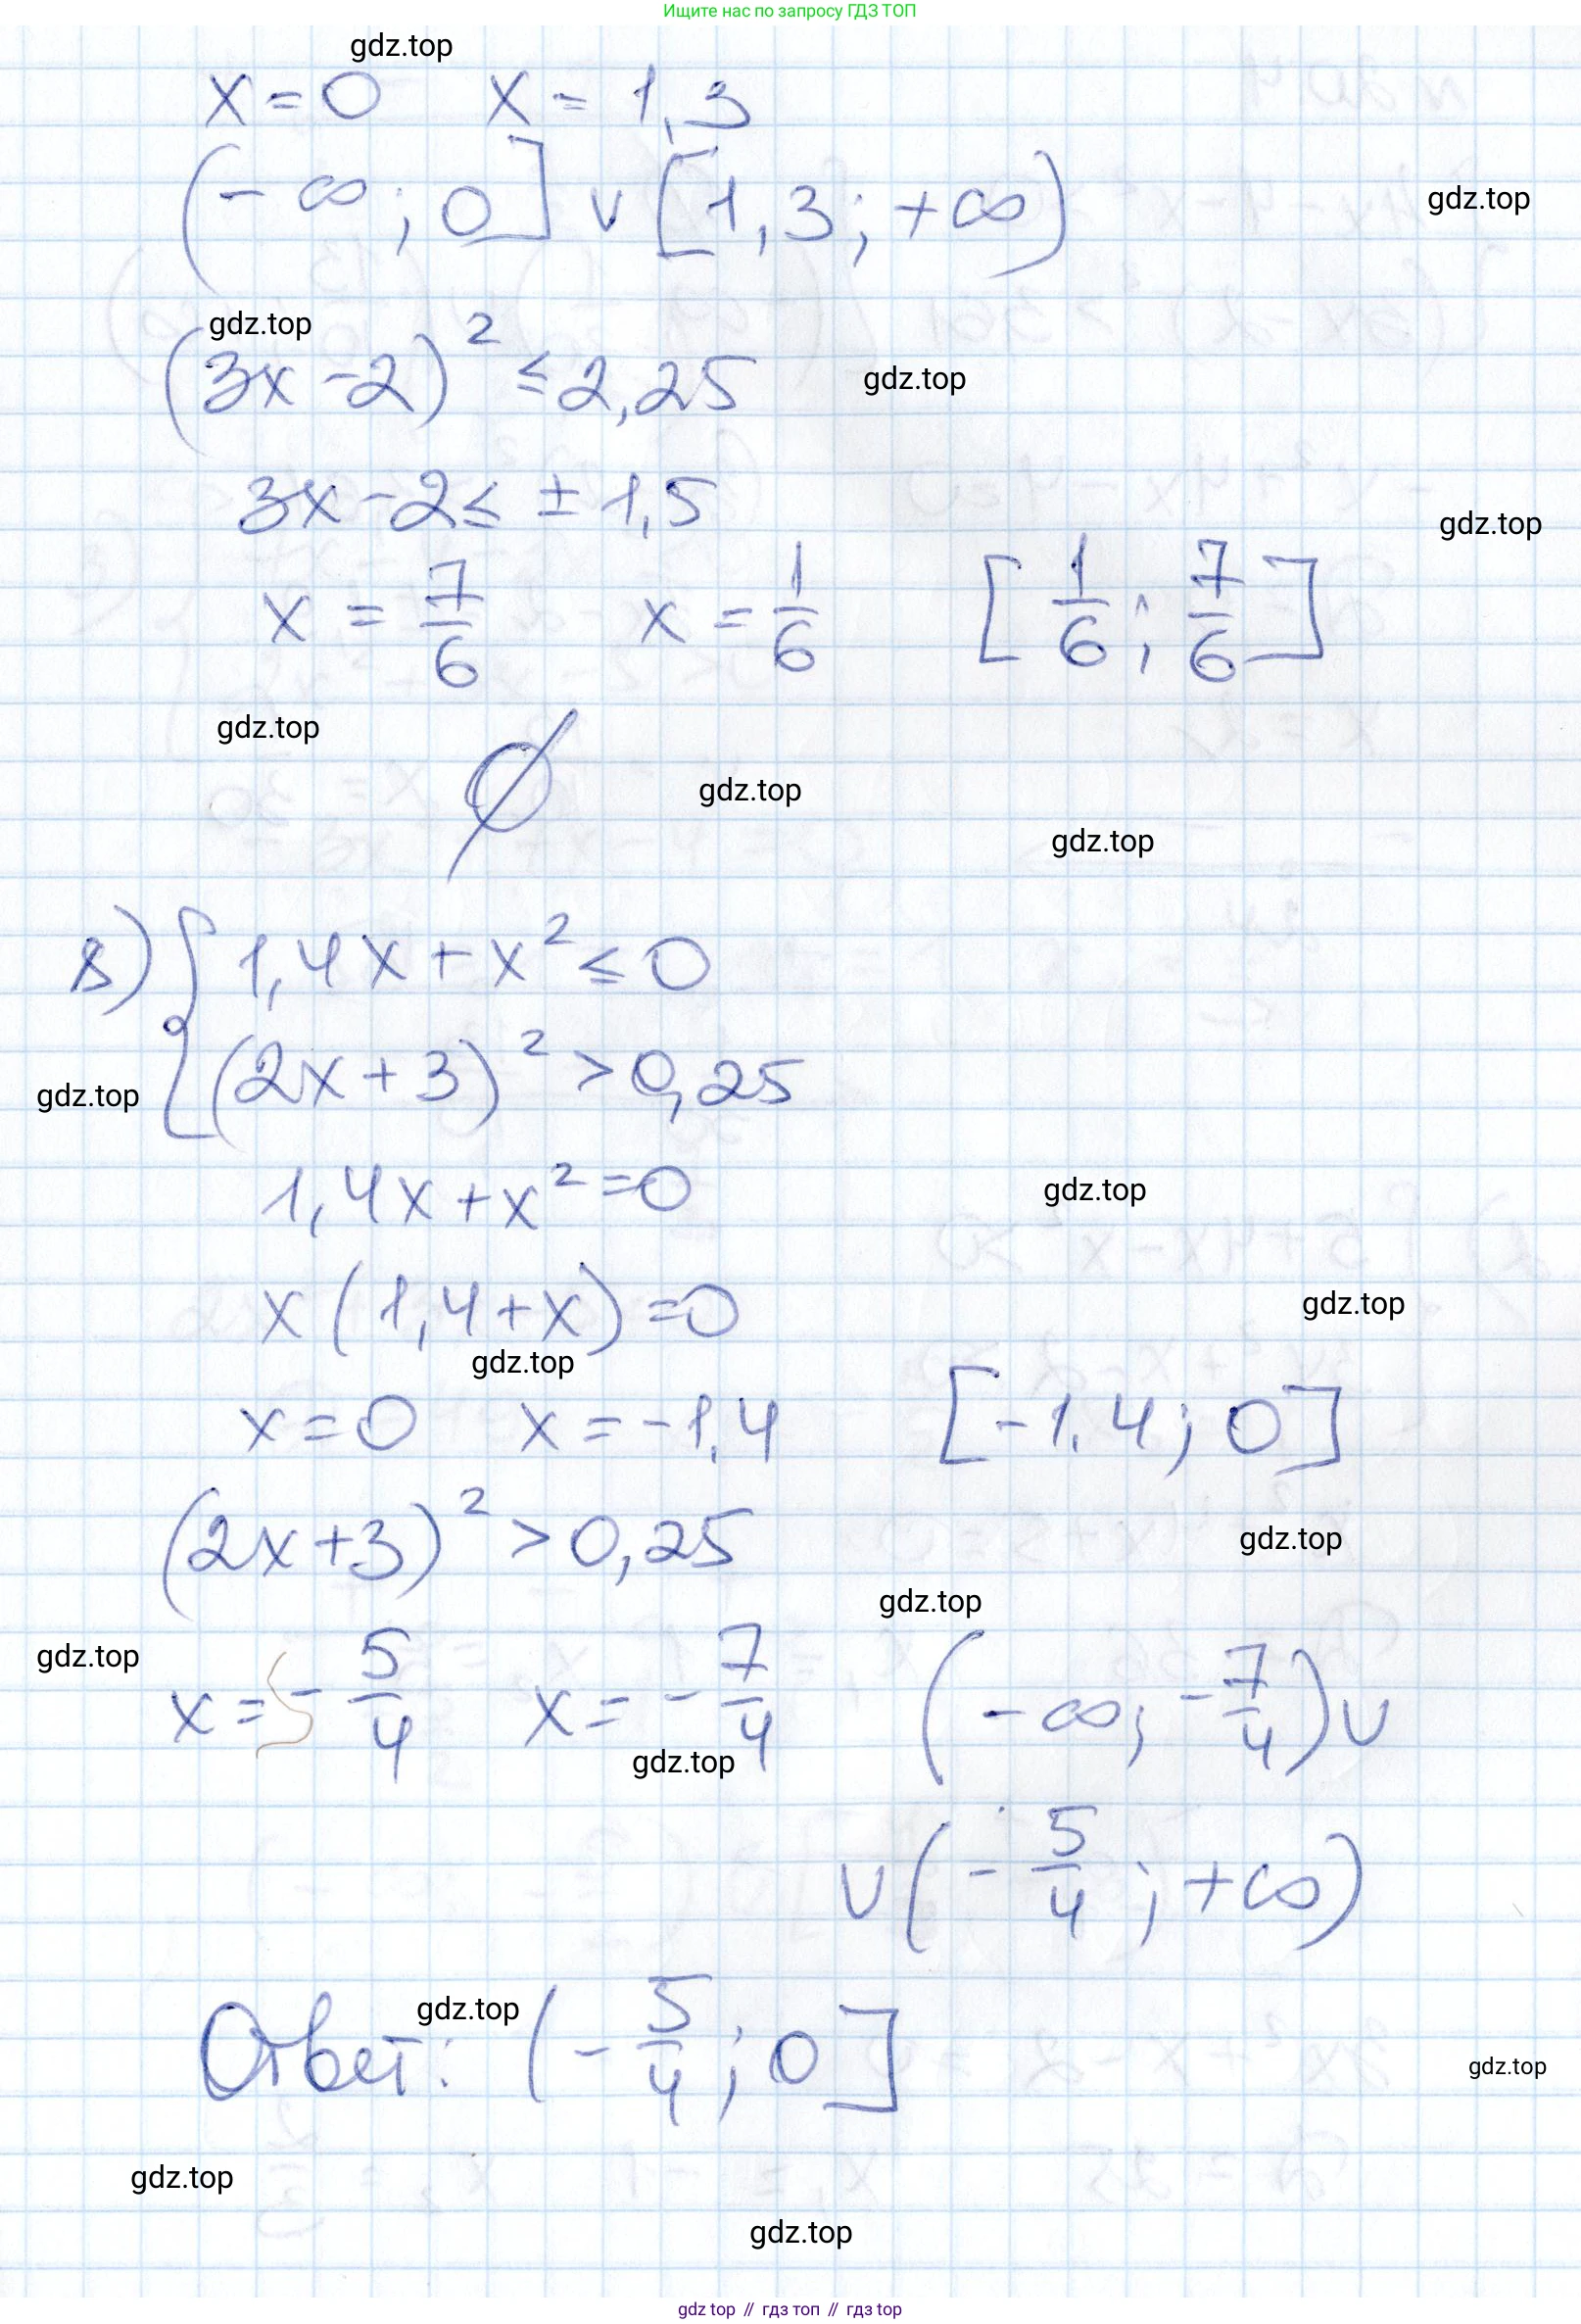 Ищите нас по запросу ГДЗ ТОП
gdz.top
x = 0   x = 1,3
(-∞; 0] ∪ [1,3; +∞)
gdz.top
gdz.top
(3x - 2)² ≤ 2,25
gdz.top
3x - 2 ≤ ± 1,5
gdz.top
x = 7/6   x = 1/6   [1/6; 7/6]
gdz.top
∅
gdz.top
gdz.top
в) { 1,4x + x² ≤ 0
(2x + 3)² > 0,25
gdz.top
1,4x + x² = 0
gdz.top
x (1,4 + x) = 0
gdz.top
gdz.top
x = 0   x = -1,4   [-1,4; 0]
(2x + 3)² > 0,25
gdz.top
gdz.top
gdz.top
x = -5/4   x = -7/4   (-∞; -7/4) ∪
gdz.top
∪ (-5/4; +∞)
gdz.top
Ответ: (-5/4; 0]
gdz.top
gdz.top
gdz.top
gdz top // гдз топ // гдз top